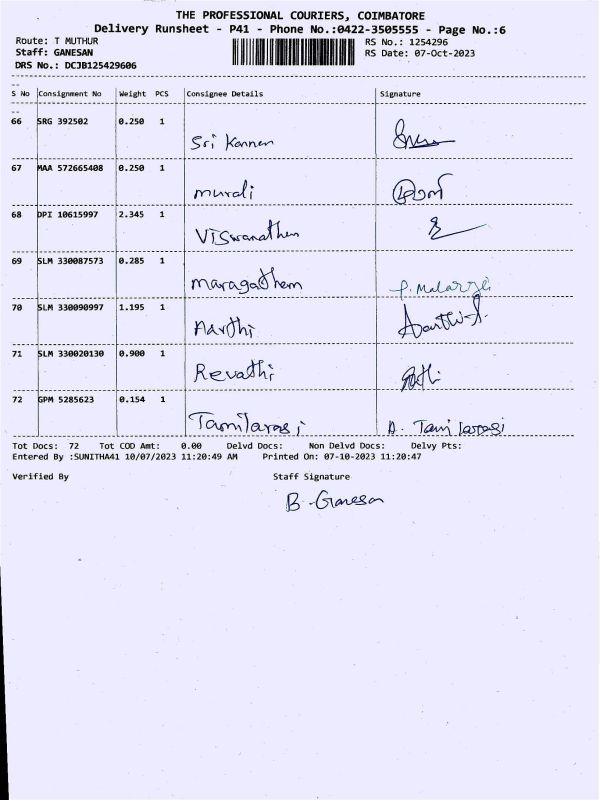 THE PROFESSIONAL COURIERS, COIMBATORE
Delivery Runsheet - P41 - Phone No.:0422-3505555 - Page No.:6
Route: T MUTHUR RS No.: 1254296
Staff: GANESAN RS Date: 07-Oct-2023
DRS No.: DCJB125429606
S No Consignment No Weight PCS Consignee Details Signature
66 SRG 392502 0.250 1
Sri Kannan
67 MAA 572665408 0.250 1
murali
68 DPI 10615997 2.345 1
Viswanathan
69 SLM 330087573 0.285 1
maragathem P. Malar
70 SLM 330090997 1.195 1
Aarthi Aarthi.S
71 SLM 330020130 0.900 1
Revathi
72 GPM 5285623 0.154 1
Tamilarasi A. Tamilarasi
Tot Docs: 72 Tot COD Amt: 0.00 Delvd Docs: Non Delvd Docs: Delvy Pts:
Entered By :SUNITHA41 10/07/2023 11:20:49 AM Printed On: 07-10-2023 11:20:47
Verified By Staff Signature
B. Ganesan